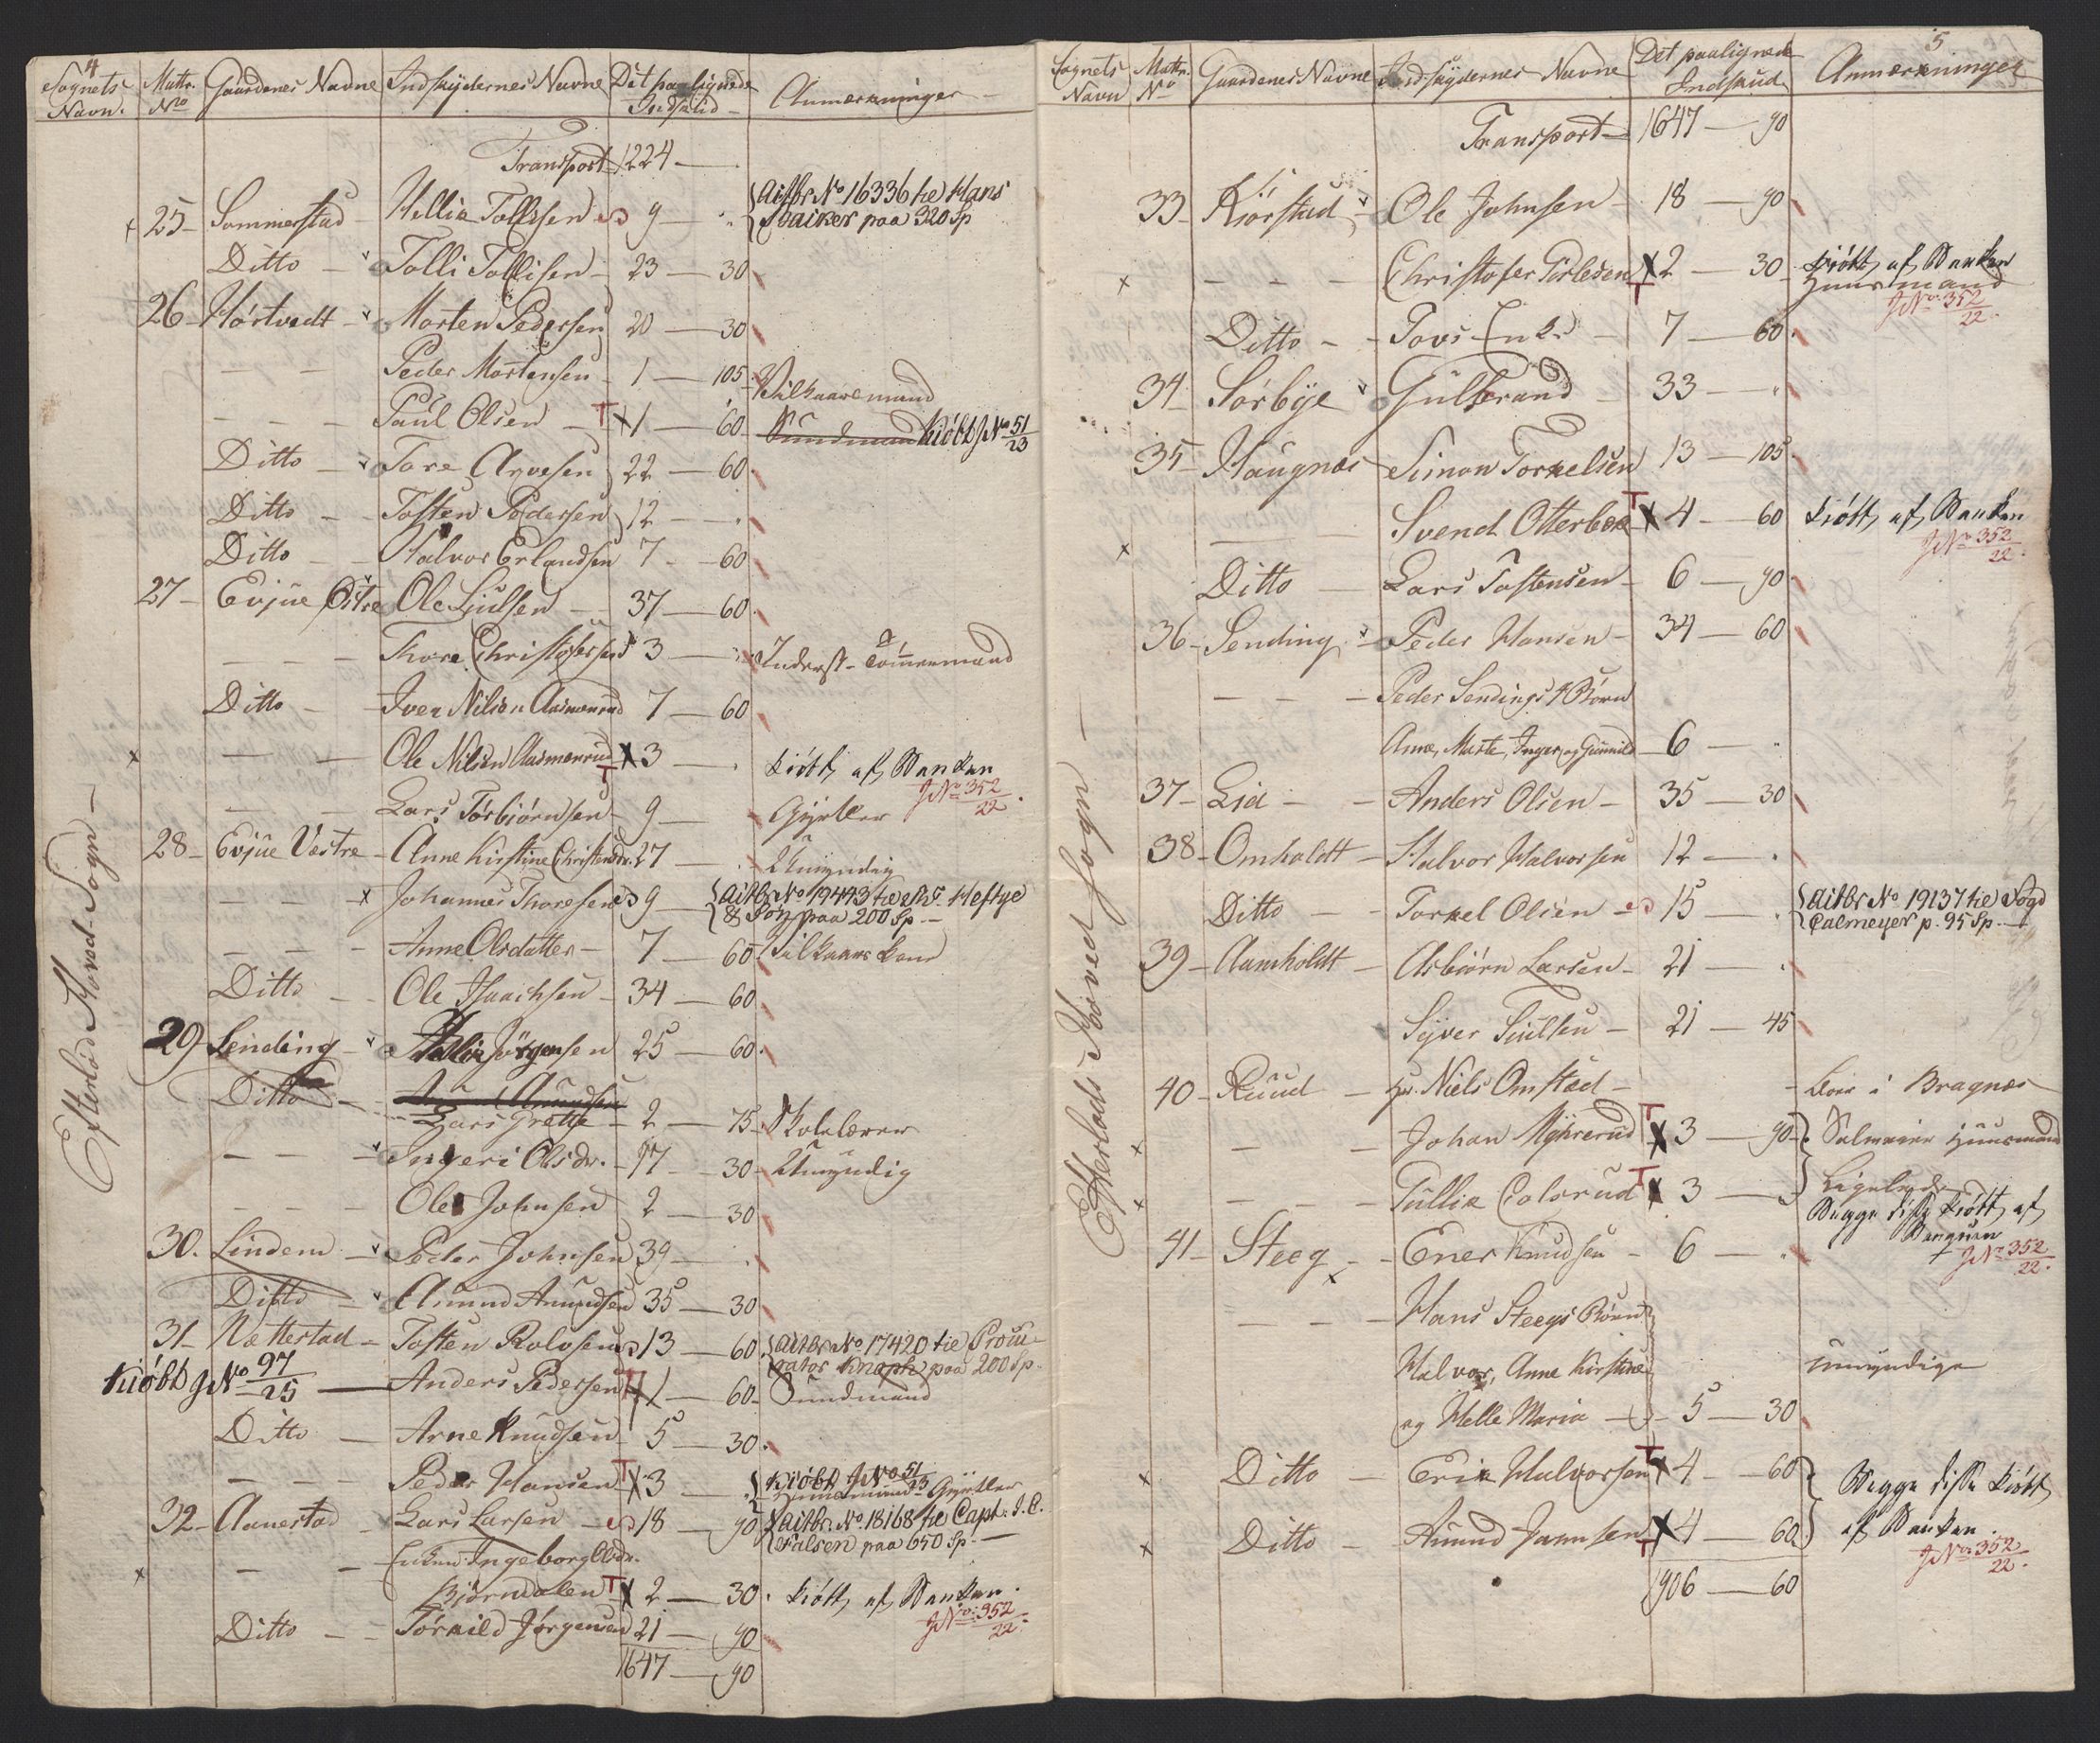 4
Sognets Navn. Matr. No Gaardenes Navne Indskydernes Navne Det paalignede Indskud Anmærkninger
Transport 1224 —
25 Sommerstad Tollisen 9 — Aitbr No 16336 til Hans paa 320 Sp
Ditto Tolli Tollisen 23 — 30
26 Hørtvedt Morten Pedersen 20 — 30
Peder Mortensen 1 — 105 Vilkaarsmand
Paul Olsen T 1 — 60 Kiøbt J No 51/23
Ditto Tore Arvesen 22 — 60
Ditto Tosten Pedersen 12 —
Ditto Halvor Erlandsen 7 — 60
27 Evjue Østre Ole Liulsen 37 — 60
Thore Christofersen 3 — Inderst — Tømmermand
Ditto Iver Nilsen Aasmerud 7 — 60
x Ole Nilsen Aasmerud T 3 — kiøbt af Banken
J No 352/22
Lars Torbiørnsen 9 — Gjørtler
28 Evjue Vestre Anne Kirstine Christensdr. 27 — Umyndig
x Johannes Thoresen 9 — Aitbr No 19443 til Heftye
& Søn paa 200 Sp
Anne Olsdatter 7 — 60 Vilkaars kone
Ditto Ole Isaachsen 34 — 60
29 Lending Jørgensen 25 — 60
Ditto
Lars Grette 2 — 75 Skolelærer
Ingeri Olsdr. 97 — 30 Umyndig
Ole Johnsen 2 — 30
30. Lindem Peder Johnsen 39 —
Ditto Amund Amundsen 35 — 30
31 Nættestad Tosten Rolvsen 13 — 60 Aitbr No 17420 til Procurator Knoph paa 200 Sp
Kiøbt J No 97/25 Anders Pedersen 1 — 60 Sundmand
Ditto Arne Knudsen 5 — 30
Peder Hansen T 3 — Kiøbt J No 51/23 Huusmand Gjørtler
32 Aanestad Lars Larsen 18 — 90 Aitbr. No 18168 til Capt. I. C. Falsen paa 650 Sp
x Enken Ingeborg Olsdr.
Biørndalen T 2 — 30 kiøbt af Banken
J No 352/22
Ditto Torkild Jørgensen 21 — 90
1647 — 90
Efterløb Hoved-Sogn —
5
Sognets Navn Matr. No Gaardenes Navne Indskydernes Navne Det paalignede Indskud Anmærkninger
Transport 1647 — 90
33 Kiørstad Ole Johnsen 18 — 90
x Christofer T 2 — 30 kiøbt af Banken
Huusmand
J No 352/22
Ditto Tovs Enke 7 — 60
34 Sørbye Gulbrand 33 —
35 Haugnæs Simon Torkelsen 13 — 105
x Svend Otterbek T 4 — 60 kiøbt af Banken
J No 352/22
Ditto Lars Tostensen 6 — 90
36 Sending Peder Hansen 34 — 60
Peder Sendings 4 Børn
Anne, Marte, Inger og Gunnild 6 —
37 Lid Anders Olsen 35 — 30
38 Omholdt Halvor Halvorsen 12 —
Ditto Torkel Olsen 15 — Aitbr No 19137 til Fogd
Calmeyer p. 95 Sp.
39 Aamholdt Asbiørn Larsen 21 —
Syver Siulsen 21 — 45
40 Ruud Hr. Niels Omstæd — Boer i Bragnæs
x Johan Myhrerud T 3 — 90 Salmaker Huusmand
x Tullia Colsrud T 3 — Ligeledes
Begge disse kiøbt af Banquen
J No 352/22
41 Steeg Ener Knudsen 6 —
Hans Steegs Børn
Halvor, Anne Kirstine umyndige
og Helle Maria 5 — 30
x Ditto Erik Halvorsen T 4 — 60 Begge disse kiøbt
x Ditto Amund T 4 — 60 af Banken.
J No 352/22
1906 — 60
Efterløb Hoved Sogn —